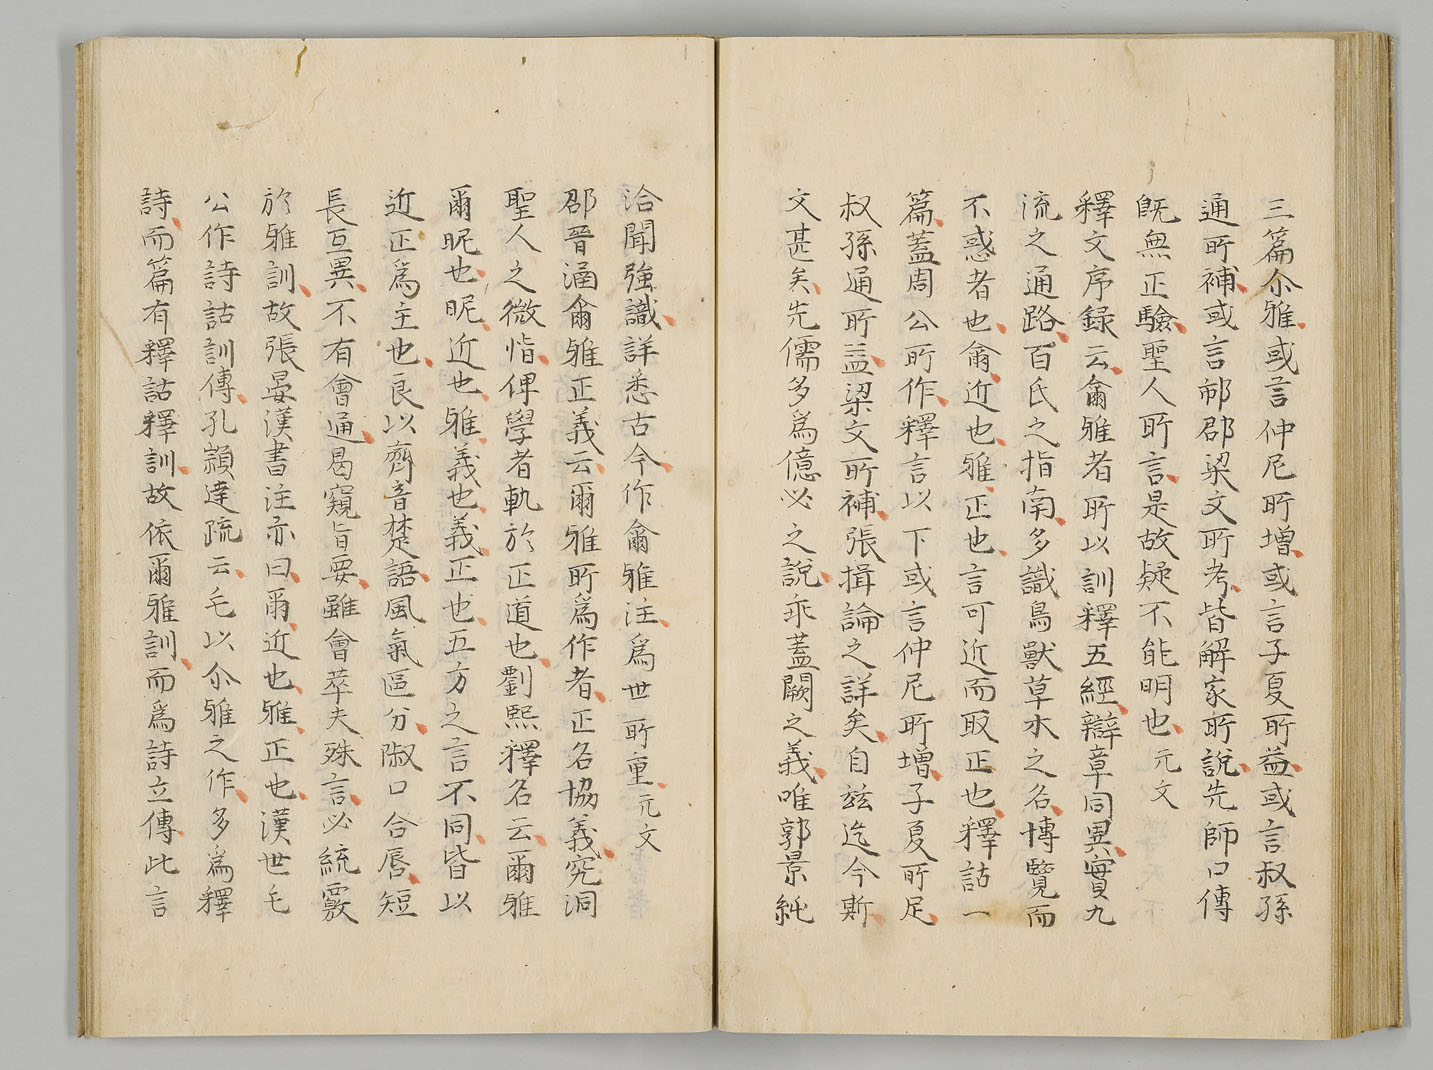 三篇尒雅或言仲尼所增或言子夏所益或言叔孫
通所補或言郁郡梁文所考皆解家所說先師口傳
旣無正驗聖人所言是故疑不能明也元文
釋文序録云爾雅者所以訓釋五經辯章同異實九
流之通路百氏之指南多識鳥獸草木之名博覽而
不惑者也爾近也雅正也言可近而取正也釋詁一
篇蓋周公所作釋言以下或言仲尼所增子夏所足
叔孫通所益梁文所補張揖論之詳矣自玆迄今斯
文甚矣先儒多爲億必之說乖蓋闕之義唯郭景純
洽聞強識詳悉古今作爾雅注爲世所重元文
郡晉涵爾雅正義云爾雅所爲作者正名協義究洞
聖人之微恉俾學者軌於正道也劉熙釋名云爾雅
爾昵也昵近也雅義也義正也五方之言不同皆以
近正爲主也良以齊音楚語風氣區分敊口合唇短
長互異不有會通曷窺旨要雖會萃夫殊言必統覈
於雅訓故張晏漢書注亦曰爾近也雅正也漢世毛
公作詩詁訓傳孔穎達疏云毛以尒雅之作多爲釋
詩而篇有釋詁釋訓故依爾雅訓而爲詩立傳此言